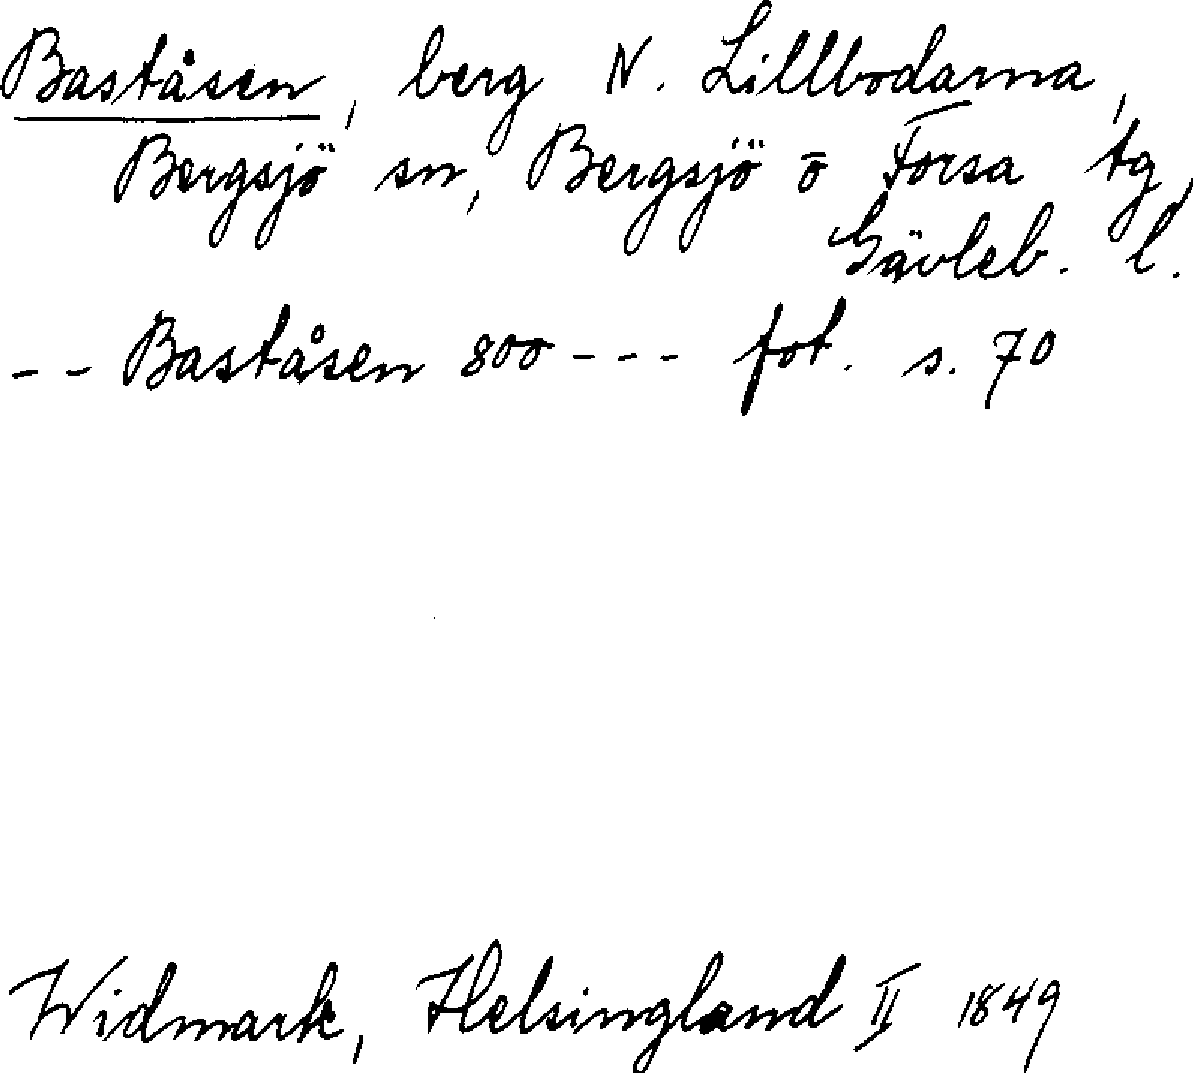 Baståsen, berg N. Lillbodarna,
Bergsjö sn, Bergsjö o Forsa tg,
Gävleb. l.
-- Baståsen 800 --- fot. s. 70
Widmark, Helsingland II 1849